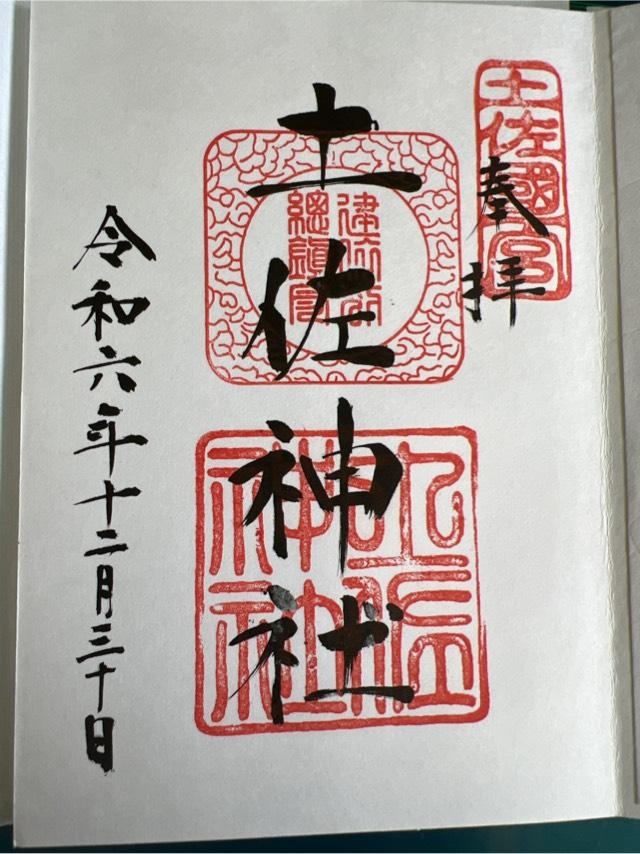 土佐國一宮
奉拝
建依別
總鎮守
土佐神社
土佐
神社
令和六年十二月三十日